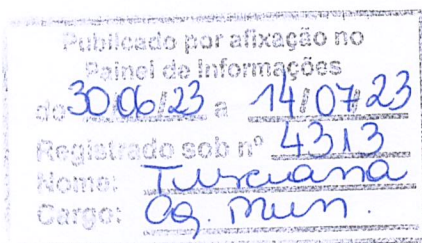 Publicado por afixação no
Painel de Informações
de 30/06/23 a 14/07/23
Registrado sob nº 4313
Nome:
Cargo: Ag. Mun.